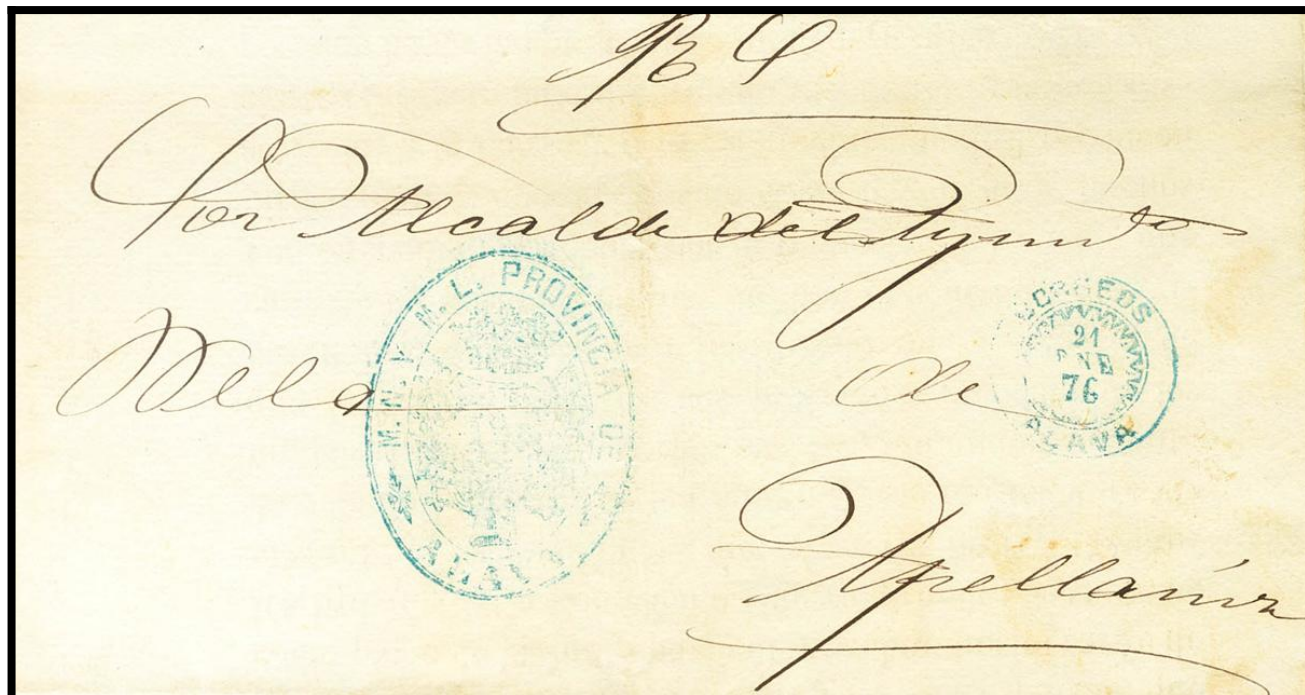 R S
Sor Alcalde del Ayunto
M. N. Y M. L. PROVINCIA DE
ALAVA
CORREOS
21
ENE
76
ALAVA
de
Apellániz